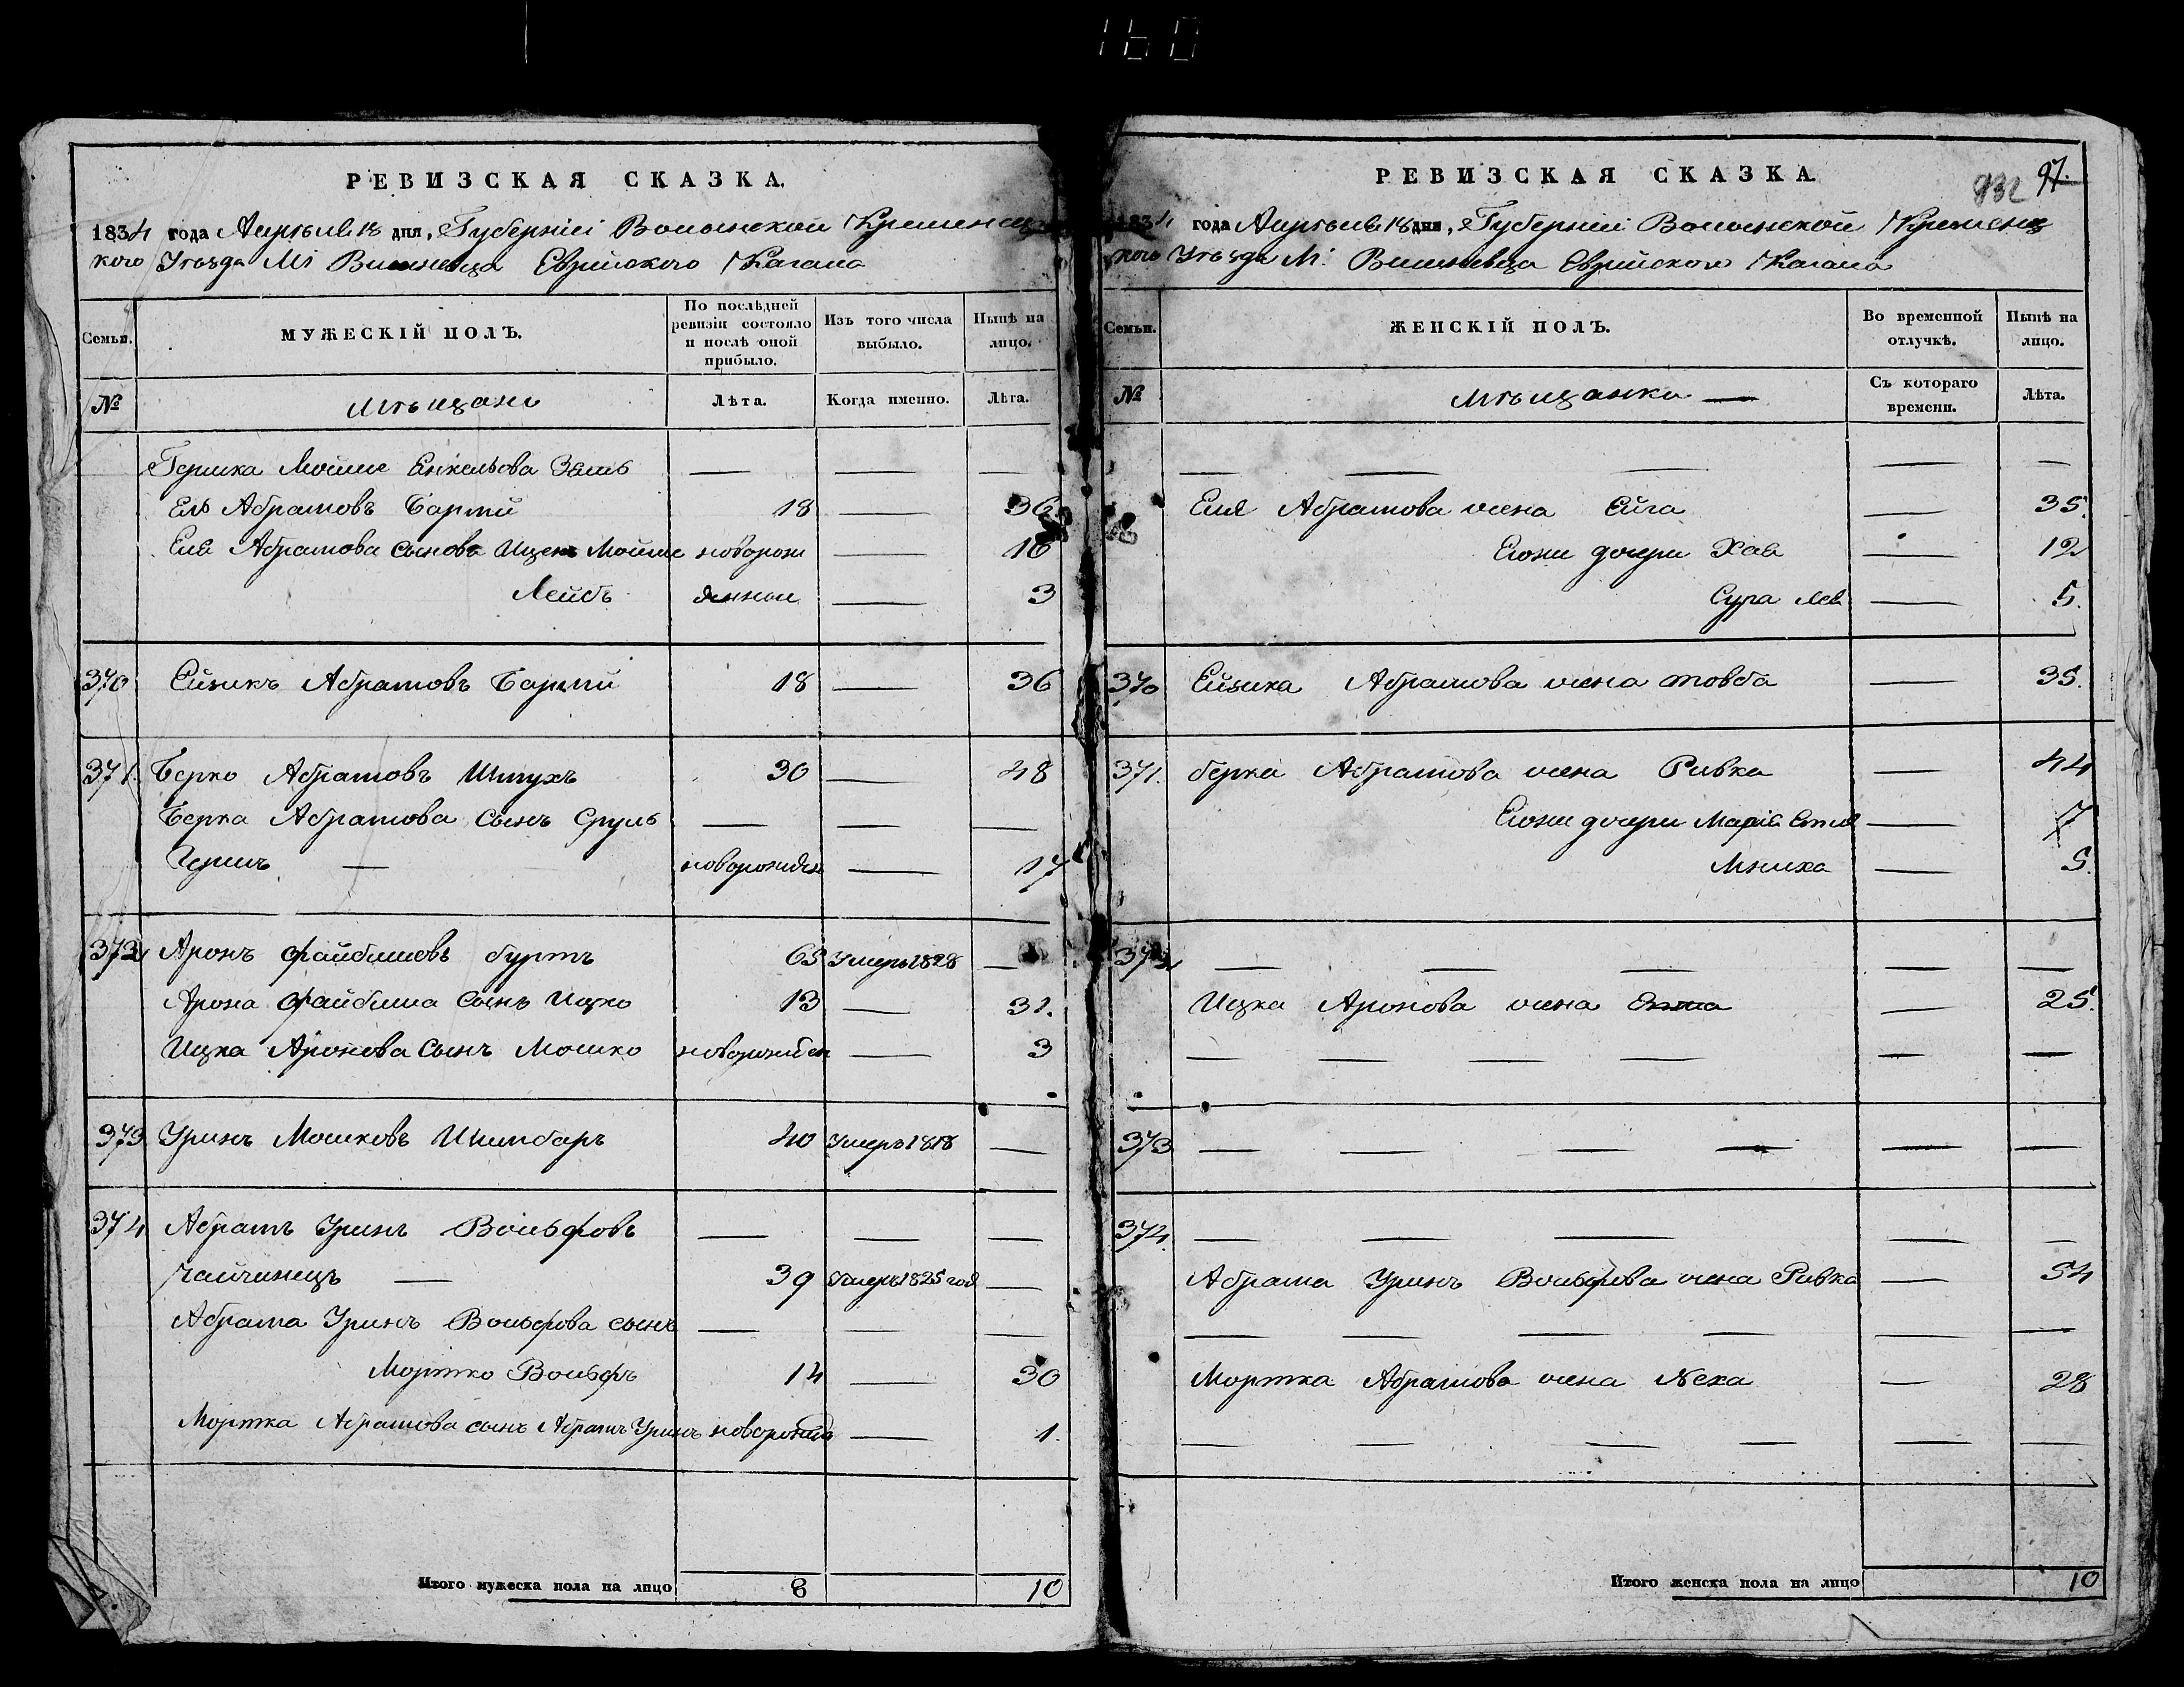 160
РЕВИЗСКАЯ СКАЗКА.
1834 года Апрѣля 18 дня, Губерніи Волынской Кременец
кого Уѣзда М. Вишневца Еврейского Кагала
Семьи.
МУЖЕСКІЙ ПОЛЪ.
По послѣдней ревизіи состояло и послѣ оной прибыло.
Изъ того числа выбыло.
Нынѣ на лицо.
№
мѣщане
Лѣта.
Когда именно.
Лѣта.
Гершка Мошие Енкельова Зять — — —
Ель Абрамовъ Бармй 18 — 36
Еля Абрамова сыновя Ицекъ Мойше новорож — 16
Лейбъ денные — 3
370 Ейзикъ Абрамовъ Бармй 18 — 36
371. Берко Абрамовъ Штухъ 30 — 48
Берка Абрамова сынъ Сруль — — —
Гершъ — новорожден — 17
372 Аронъ Файбишовъ буртъ 63 Умеръ 1828 —
Арона Файбиша сынъ Ицко 13 — 31.
Ицка Аронова сынъ Мошко новорожден — 3
373 Уринъ Мошковъ Шимбаръ 40 Умеръ 1818 —
374 Абрамъ Уринъ Вольфовъ — — —
Чайчинецъ — 39 Умеръ 1825 год —
Абрама Уринъ Вольфова сынъ — — —
Мортко Вольфъ 14 — 30
Мортка Абрамова сынъ Абрамъ Уринъ новорожд — 1.
Итого мужеска пола на лицо 8 10
РЕВИЗСКАЯ СКАЗКА.
932 97.
1834 года Апрѣля 18 дня, Губерніи Волынской Кременец
кого Уѣзда М. Вишневца Еврейского Кагала
Семьи.
ЖЕНСКІЙ ПОЛЪ.
Во временной отлучкѣ.
Нынѣ на лицо.
№
мѣщанки —
Съ котораго времени.
Лѣта.
— — — — —
Еля Абрамова жена Ейга — 35.
Егожи дочери Хая — 12
Сура Лея — 5.
370 Ейзика Абрамова жена товба — 35.
371. берка Абрамова жена Ривка — 44
Егожи дочери Марія — 7
Мниха — 5.
372 — — — — —
Ицка Аронова жена — 25.
— — — — — —
373 — — — — — —
374. — — — — —
Абрама Уринъ Вольфова жена Ривка — 54
— — — — — —
Мортка Абрамова жена Неха — 28
— — — — — —
Итого женска пола на лицо 10